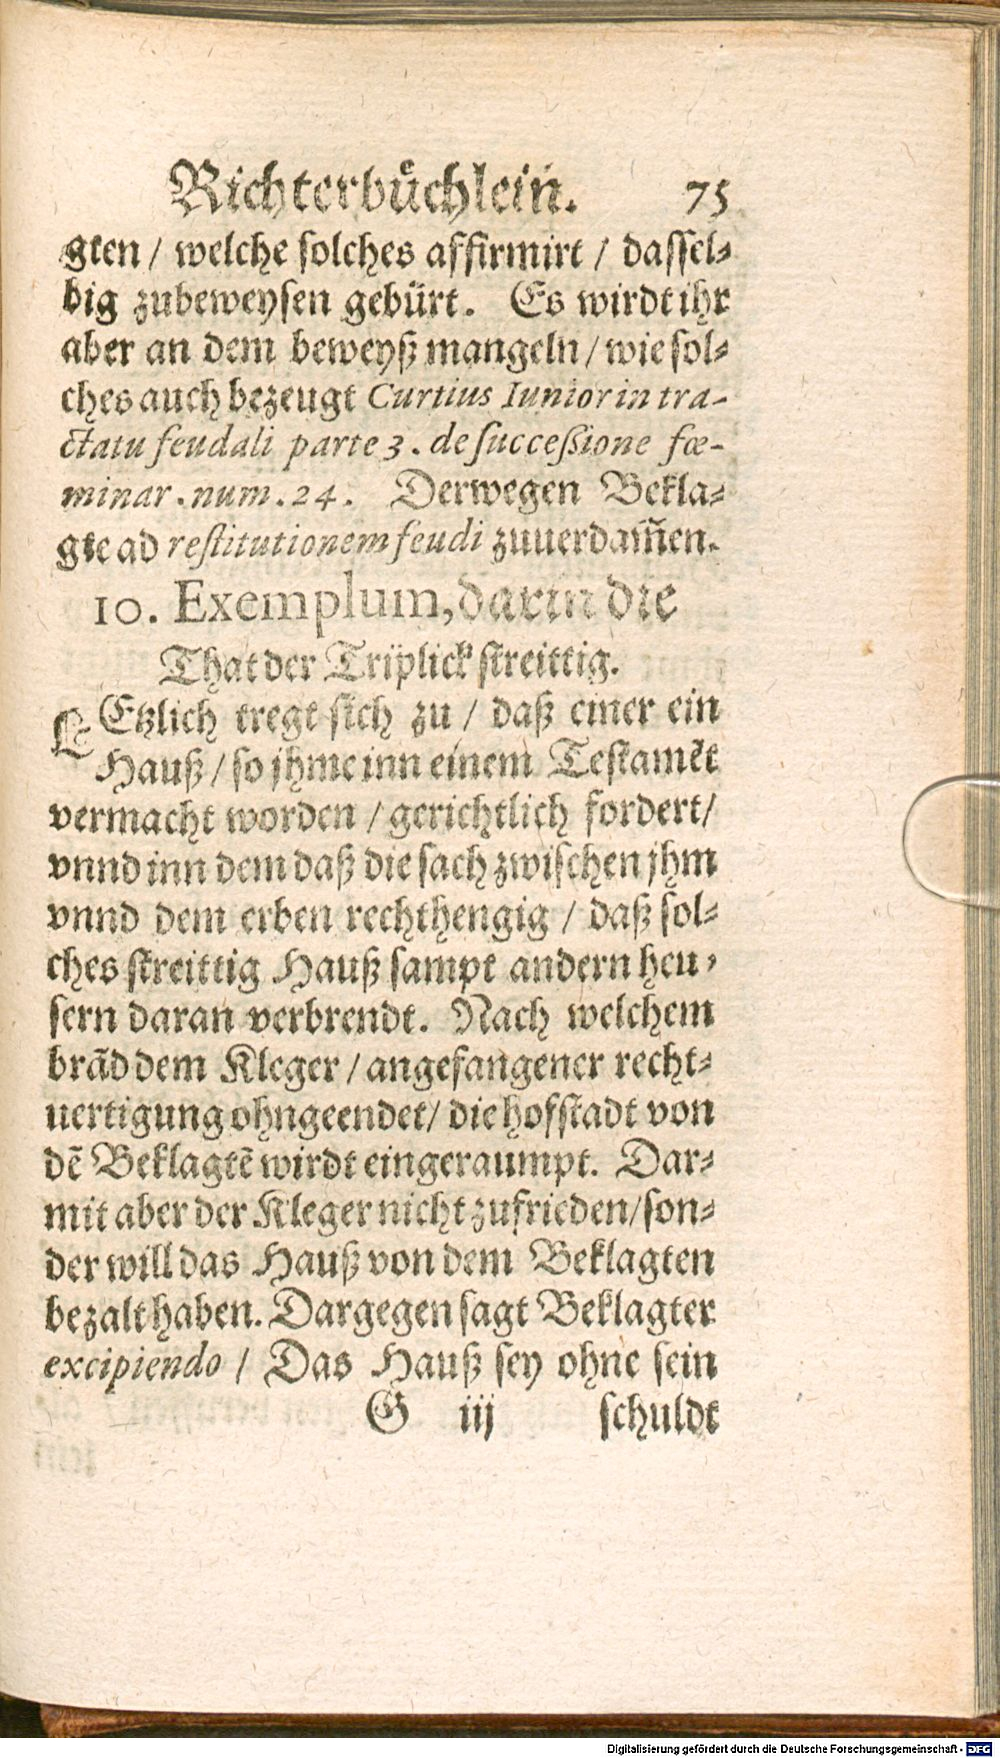 Richterbüchlein. 75
gten / welche solches affirmirt / dassel-
big zubeweysen gebürt. Es wirdt ihr
aber an dem beweyß mangeln / wie sol-
ches auch bezeugt Curtius Iunior in tra-
ctatu feudali parte 3. de successione fœ-
minar. num. 24. Derwegen Bekla-
gte ad restitutionem feudi zuuerdam̃en.
10. Exemplum, darin die
That der Triplick streittig.
LEtzlich tregt sich zu / daß einer ein
Hauß / so jhme inn einem Testamẽt
vermacht worden / gerichtlich fordert /
vnnd inn dem daß die sach zwischen jhm
vnnd dem erben rechthengig / daß sol-
ches streittig Hauß sampt andern heu-
sern daran verbrendt. Nach welchem
brãd dem Kleger / angefangener recht-
uertigung ohngeendet / die hofstadt von
dẽ Beklagtẽ wirdt eingeraumpt. Dar-
mit aber der Kleger nicht zufrieden / son-
der will das Hauß von dem Beklagten
bezalt haben. Dargegen sagt Beklagter
excipiendo / Das Hauß sey ohne sein
G iij schuldt
Digitalisierung gefördert durch die Deutsche Forschungsgemeinschaft - DFG